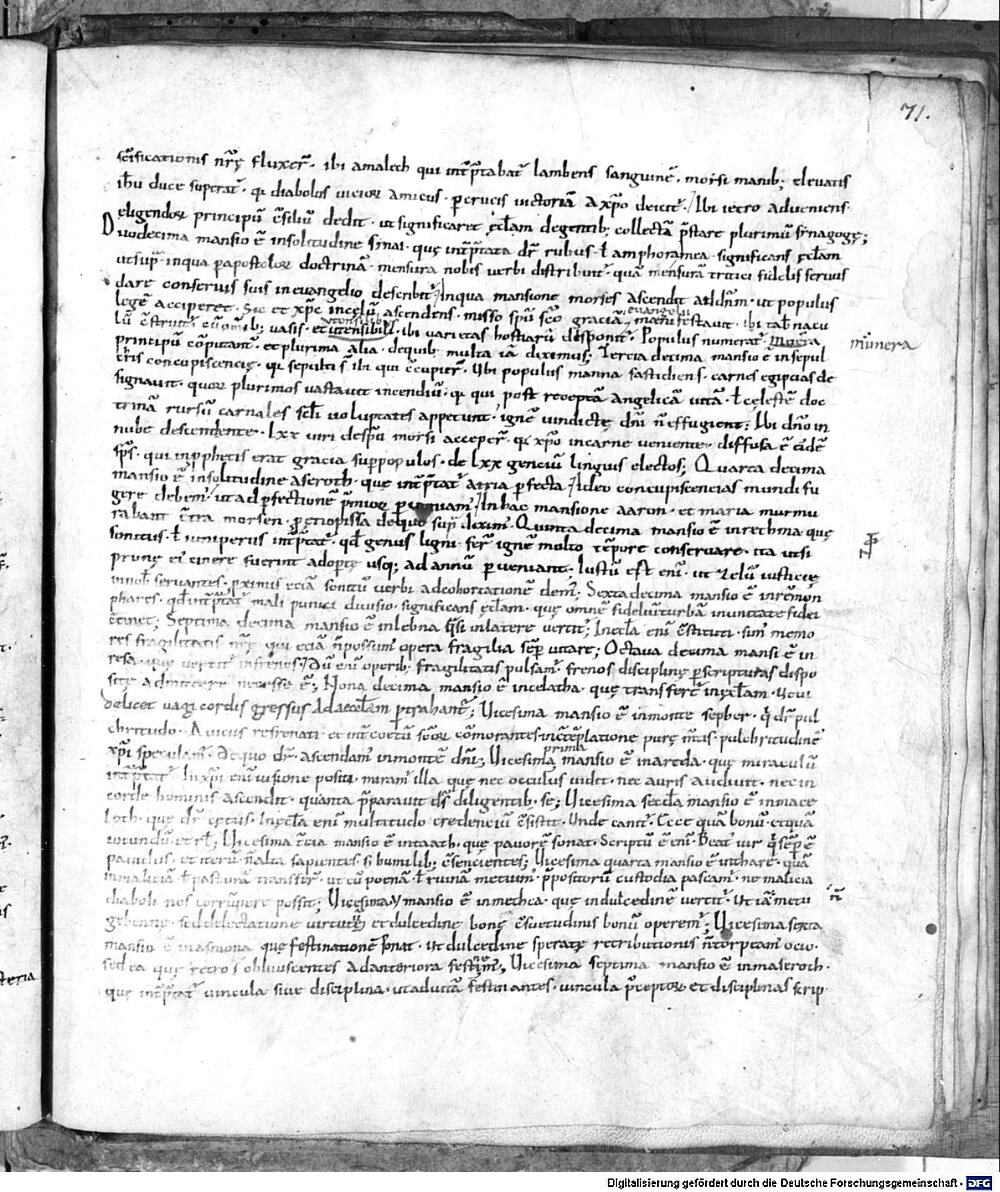 71.
scificationis nrę fluxer̄. ibi amalech qui int̄p̄tabat̄ lambens sanguinē. moysi manib; elevatis
ihu duce superat̄. qi diabolus vicior amicus. per crucis victoriā a xp̄o deicit̄. Ibi ietro adveniens
eligendor principū c̄siliū dedit. ut significaret ęcl̄am de gentib; collectā p̄stare plurimū synagogę;
Duodecima mansio ē in solitudine synai. quę int̄p̄tata dr̄ rubus. ł amphoramea. significans ęcl̄am
ut sup̄. in qua p apostolor doctrinā. mensura nobis verbi distribuit̄. quā mensurā tritici fidelis servus
dare conservis suis in evangelio describit̄. In qua mansione moyses ascendit ad dn̄m. ut populus
legē acciperet. Sic et xp̄c in cęlū ascendens. misso sp̄u sc̄o graciā evangelii manifestavit. ibi tab̄nacu
lū c̄struit̄ cū omib; vasis. et utensibili. utensilib; ibi varietas hostiarū disponit̄. Populus numerat̄. munera
munera
principū cōputant̄. et plurima alia. de quib; multa iā diximus; Tercia decima mansio ē in sepul
cris concupiscencię. qi sepulti s̄ ibi qui c̄cupier̄. Ubi populus manna fastidiens. carnes egipcias de
signavit. quor plurimos vastavit incendiū. qi qui post receptā angelicā vitā. ł cęlestē doc
trinā rursū carnales scl̄i voluptates appetunt. ignē vindictę dn̄i n̄ effugient; Ibi dn̄o in
nube descendente. lxx viri de sp̄u moysi acceper̄. qi xp̄o in carne veniente. diffusa ē eidē
sp̄s. qui in p̄phetis erat gracia sup populos. de lxx genciū linguis electos; Quarta decima
mansio ē in solitudine aseroth. quę int̄p̄tat̄ atria perfecta. Ideo concupiscencias mundi fu
gere debem̄. ut ad p̄fectionē p̄mior perveniam̄. In hac mansione aaron. et maria murmu
rabant c̄tra moysen. p ethiopissa de quo sup̄ dixim̄. Quinta decima mansio ē in rethma quę
sonitus. ł iuniperus int̄p̄tat̄. qd̄ genus ligni fer̄ ignē multo tēpore conservare. ita ut si
prunę ei cinere fuerint adoptę usq; ad annū perveniant. Iustū est enī. ut zelū iusticię
in nob servantes. p̄ximis eciā sonitū verbi ad cohortationē dem̄; Sexta decima mansio ē in remon
phares. qd̄ int̄p̄tat̄ mali punici divisio. significans ęcl̄am. quę omnē fideliū turbā in unitate fidei
c̄tinet; Septima decima mansio ē in lebna q̄si in latere vertit̄; In ecl̄a enī c̄stituti. sim̄ memo
res fragilitatis nrę. qui eciā n̄ possum̄ opera fragilia semp̄ vitare; Octava decima mansi ē in
resa. quę vertit̄ in frenos. Dū enī operib; fragilitatis pulsam̄. frenos disciplinę p scripturas dispo
sitę admittere necesse ē; Nona decima mansio ē in celatha. quę transfert̄ in ęcl̄am. ut vi
delicet vagi cordis gressus ad ecclesiam p̄trahant̄; Vicesima mansio ē in monte sepher. q̄ dr̄ pul
chritudo. A viciis refrenati. et int̄ coetū sc̄or cōmorantes in c̄templatione purę m̄tis. pulchritudinē
xp̄i speculam̄. de quo dr̄. ascendam̄ in monte dn̄i; Vicesima prima mansio ē in areda. quę miraculū
int̄p̄tat̄. In xp̄i enī visione positi. miram̄ illa quę nec occulus vidit. nec auris audivit. nec in
corde hominis ascendit. quanta p̄paravit ds̄ diligentib; se; Vicesima sec̄da mansio ē in mace
loth. quę dr̄ cętus. In ęcl̄a enī multitudo credenciū c̄sistit. Unde canit̄. Ecce quā bonū. et quā
iocundū. et rł; Vicesima t̄cia mansio ē in taath. quę pavorē sonat. Scriptū ē enī. Beat̄ vir q̄ semp̄ ē
pavidus. et iterū n̄ alta sapientes s̄ humilib; c̄sencientes; Vicesima quarta mansio ē in thare. quā
in maliciā ł pasturā transfer̄. ut cū poenā ł ruinā metuim̄. p̄positorū custodia pascam̄. ne malicia
diaboli nos corrūpere possit; Vicesima v mansio ē in methca. quę in dulcedinē vertit̄. Ut iā metu
n̄
gehennę. sed delectatione virtutū et dulcedine bonę c̄suetudinis bonū operem̄; Vicesima sexta
mansio ē in asmona. quę festinationē sonat. ut dulcedine speratę retributionis n̄ torpeam̄ ocio.
sed ea quę retro s̄ obliviscentes ad anteriora festinem̄; Vicesima septima mansio ē in maseroth.
quę int̄p̄tat̄ vincula sive disciplina. ut ad vitā festinantes. vincula p̄ceptor et disciplinas scrip
Digitalisierung gefördert durch die Deutsche Forschungsgemeinschaft - DFG